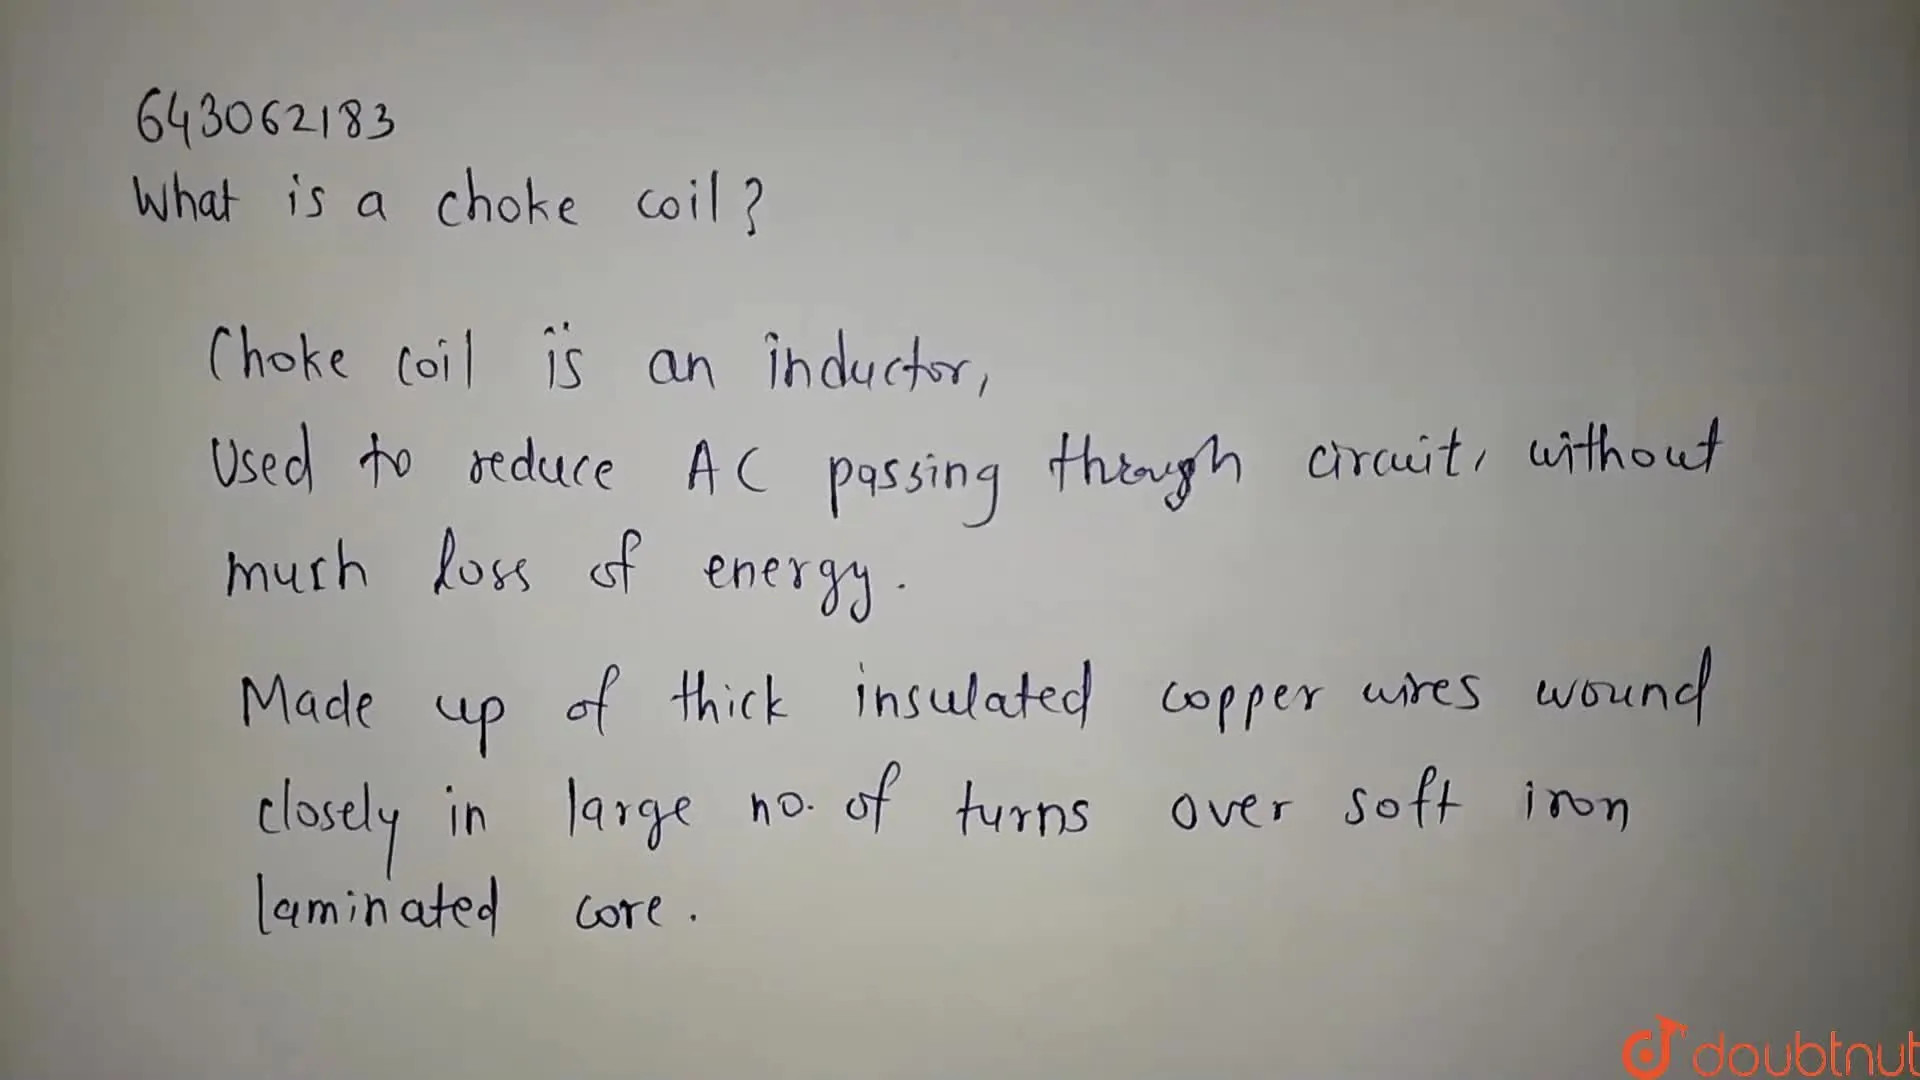 643062183
What is a choke coil?
Choke coil is an inductor,
Used to reduce AC passing through circuit, without
much loss of energy.
Made up of thick insulated copper wires wound
closely in large no. of turns over soft iron
laminated core.
doubtnut